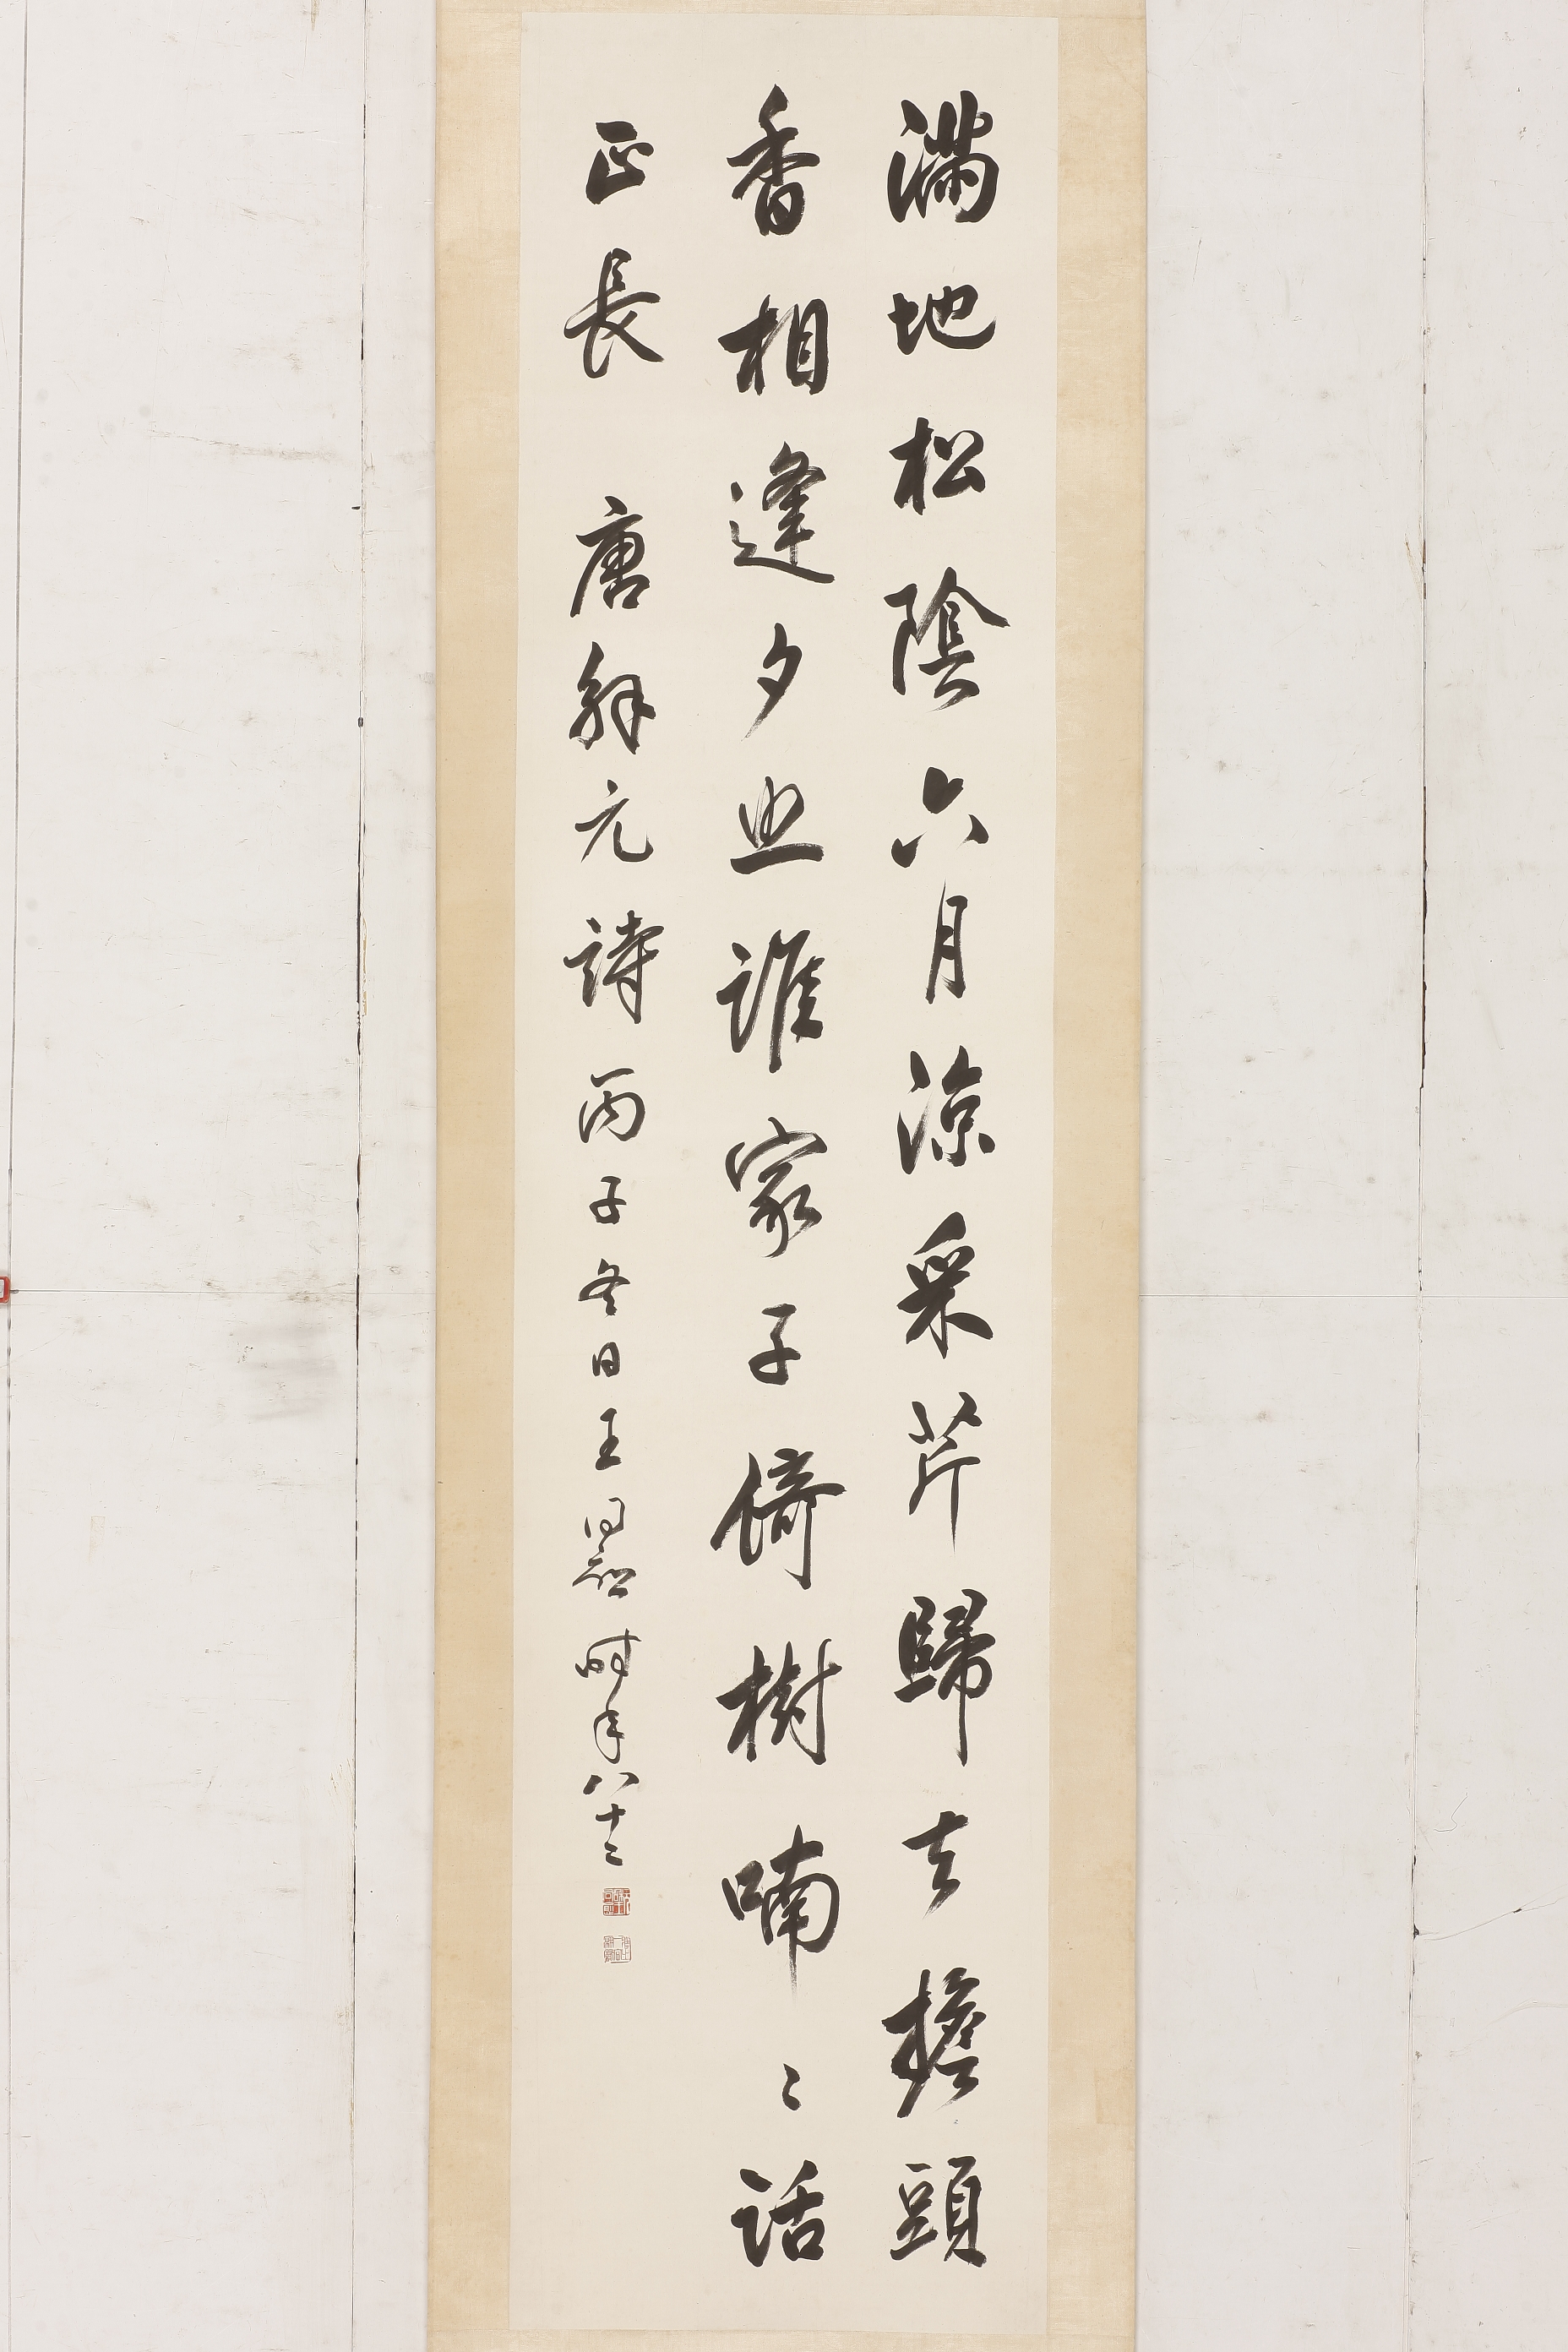 滿地松陰六月涼采芹歸去擔頭
香相逢夕照誰家子倚樹喃〻話
正長 唐解元詩 丙子冬日王同愈時年八十二